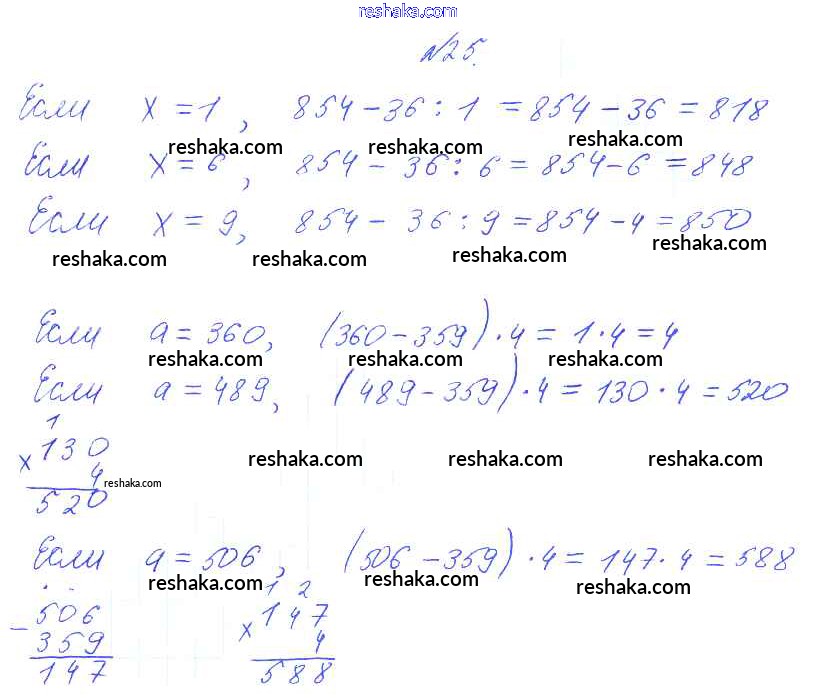 reshaka.com
№25.
Если x = 1, 854 – 36 : 1 = 854 – 36 = 818
reshaka.com reshaka.com reshaka.com
Если x = 6, 854 – 36 : 6 = 854 – 6 = 848
Если x = 9, 854 – 36 : 9 = 854 – 4 = 850
reshaka.com reshaka.com reshaka.com reshaka.com
Если a = 360, (360 – 359) · 4 = 1 · 4 = 4
reshaka.com reshaka.com reshaka.com
Если a = 489, (489 – 359) · 4 = 130 · 4 = 520
1
× 130
4
reshaka.com reshaka.com reshaka.com reshaka.com
520
Если a = 506, (506 – 359) · 4 = 147 · 4 = 588
reshaka.com reshaka.com reshaka.com
. . 1 2
– 506 × 147
359 4
147 588